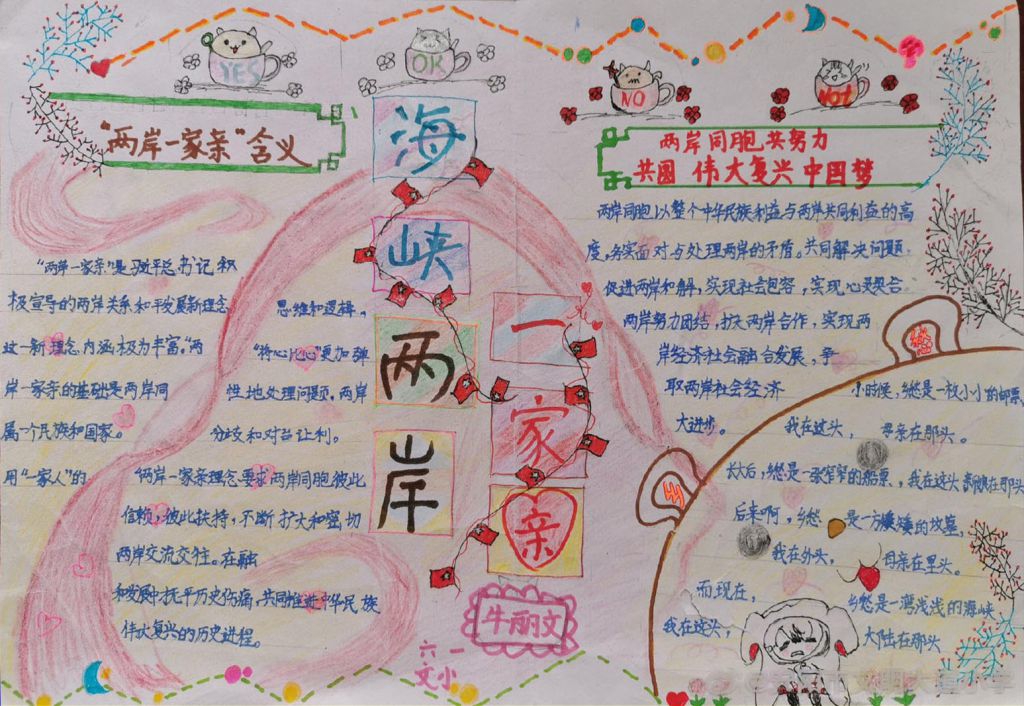 YES
OK
NO
Not
海
峡
两
岸
一
家
亲
“两岸一家亲”含义
“两岸一家亲”是习近平总书记积
极宣导的两岸关系和平发展新理念
这一新理念内涵极为丰富。“两
岸一家亲的基础是两岸同
属一个民族和国家。
用“一家人”的
思维和逻辑。
“将心比心”更加弹
性地处理问题，两岸
分歧和对各让利。
“两岸一家亲理念要求两岸同胞彼此
信赖，彼此扶持，不断扩大和密切
两岸交流交往。在融
和发展中抚平历史伤痛，共同推进中华民族
伟大复兴的历史进程。
牛丽文
六一
文小
两岸同胞共努力
共圆伟大复兴中国梦
两岸同胞以整个中华民族利益与两岸共同利益的高
度，务实面对与处理两岸的矛盾。共同解决问题
促进两岸和解，实现社会包容，实现心灵契合
两岸努力团结，扩大两岸合作，实现两
岸经济社会融合发展，争
取两岸社会经济
大进步。
乡
愁
小时候，乡愁是一枚小小的邮票，
我在这头，母亲在那头。
长大后，乡愁是一张窄窄的船票，我在这头新娘在那头
后来啊，乡愁是一方矮矮的坟墓，
我在外头，母亲在里头。
而现在，乡愁是一湾浅浅的海峡
我在这头，大陆在那头